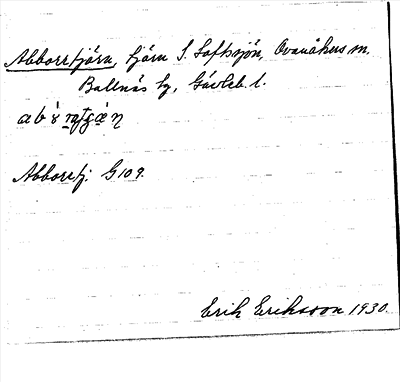 Abborrtjärn, tjärn S. Lofssjön, Ovanåkers sn.
Bollnäs tg, Gävleb. l.
Abborrtj. G 109.
Erik Eriksson 1930.